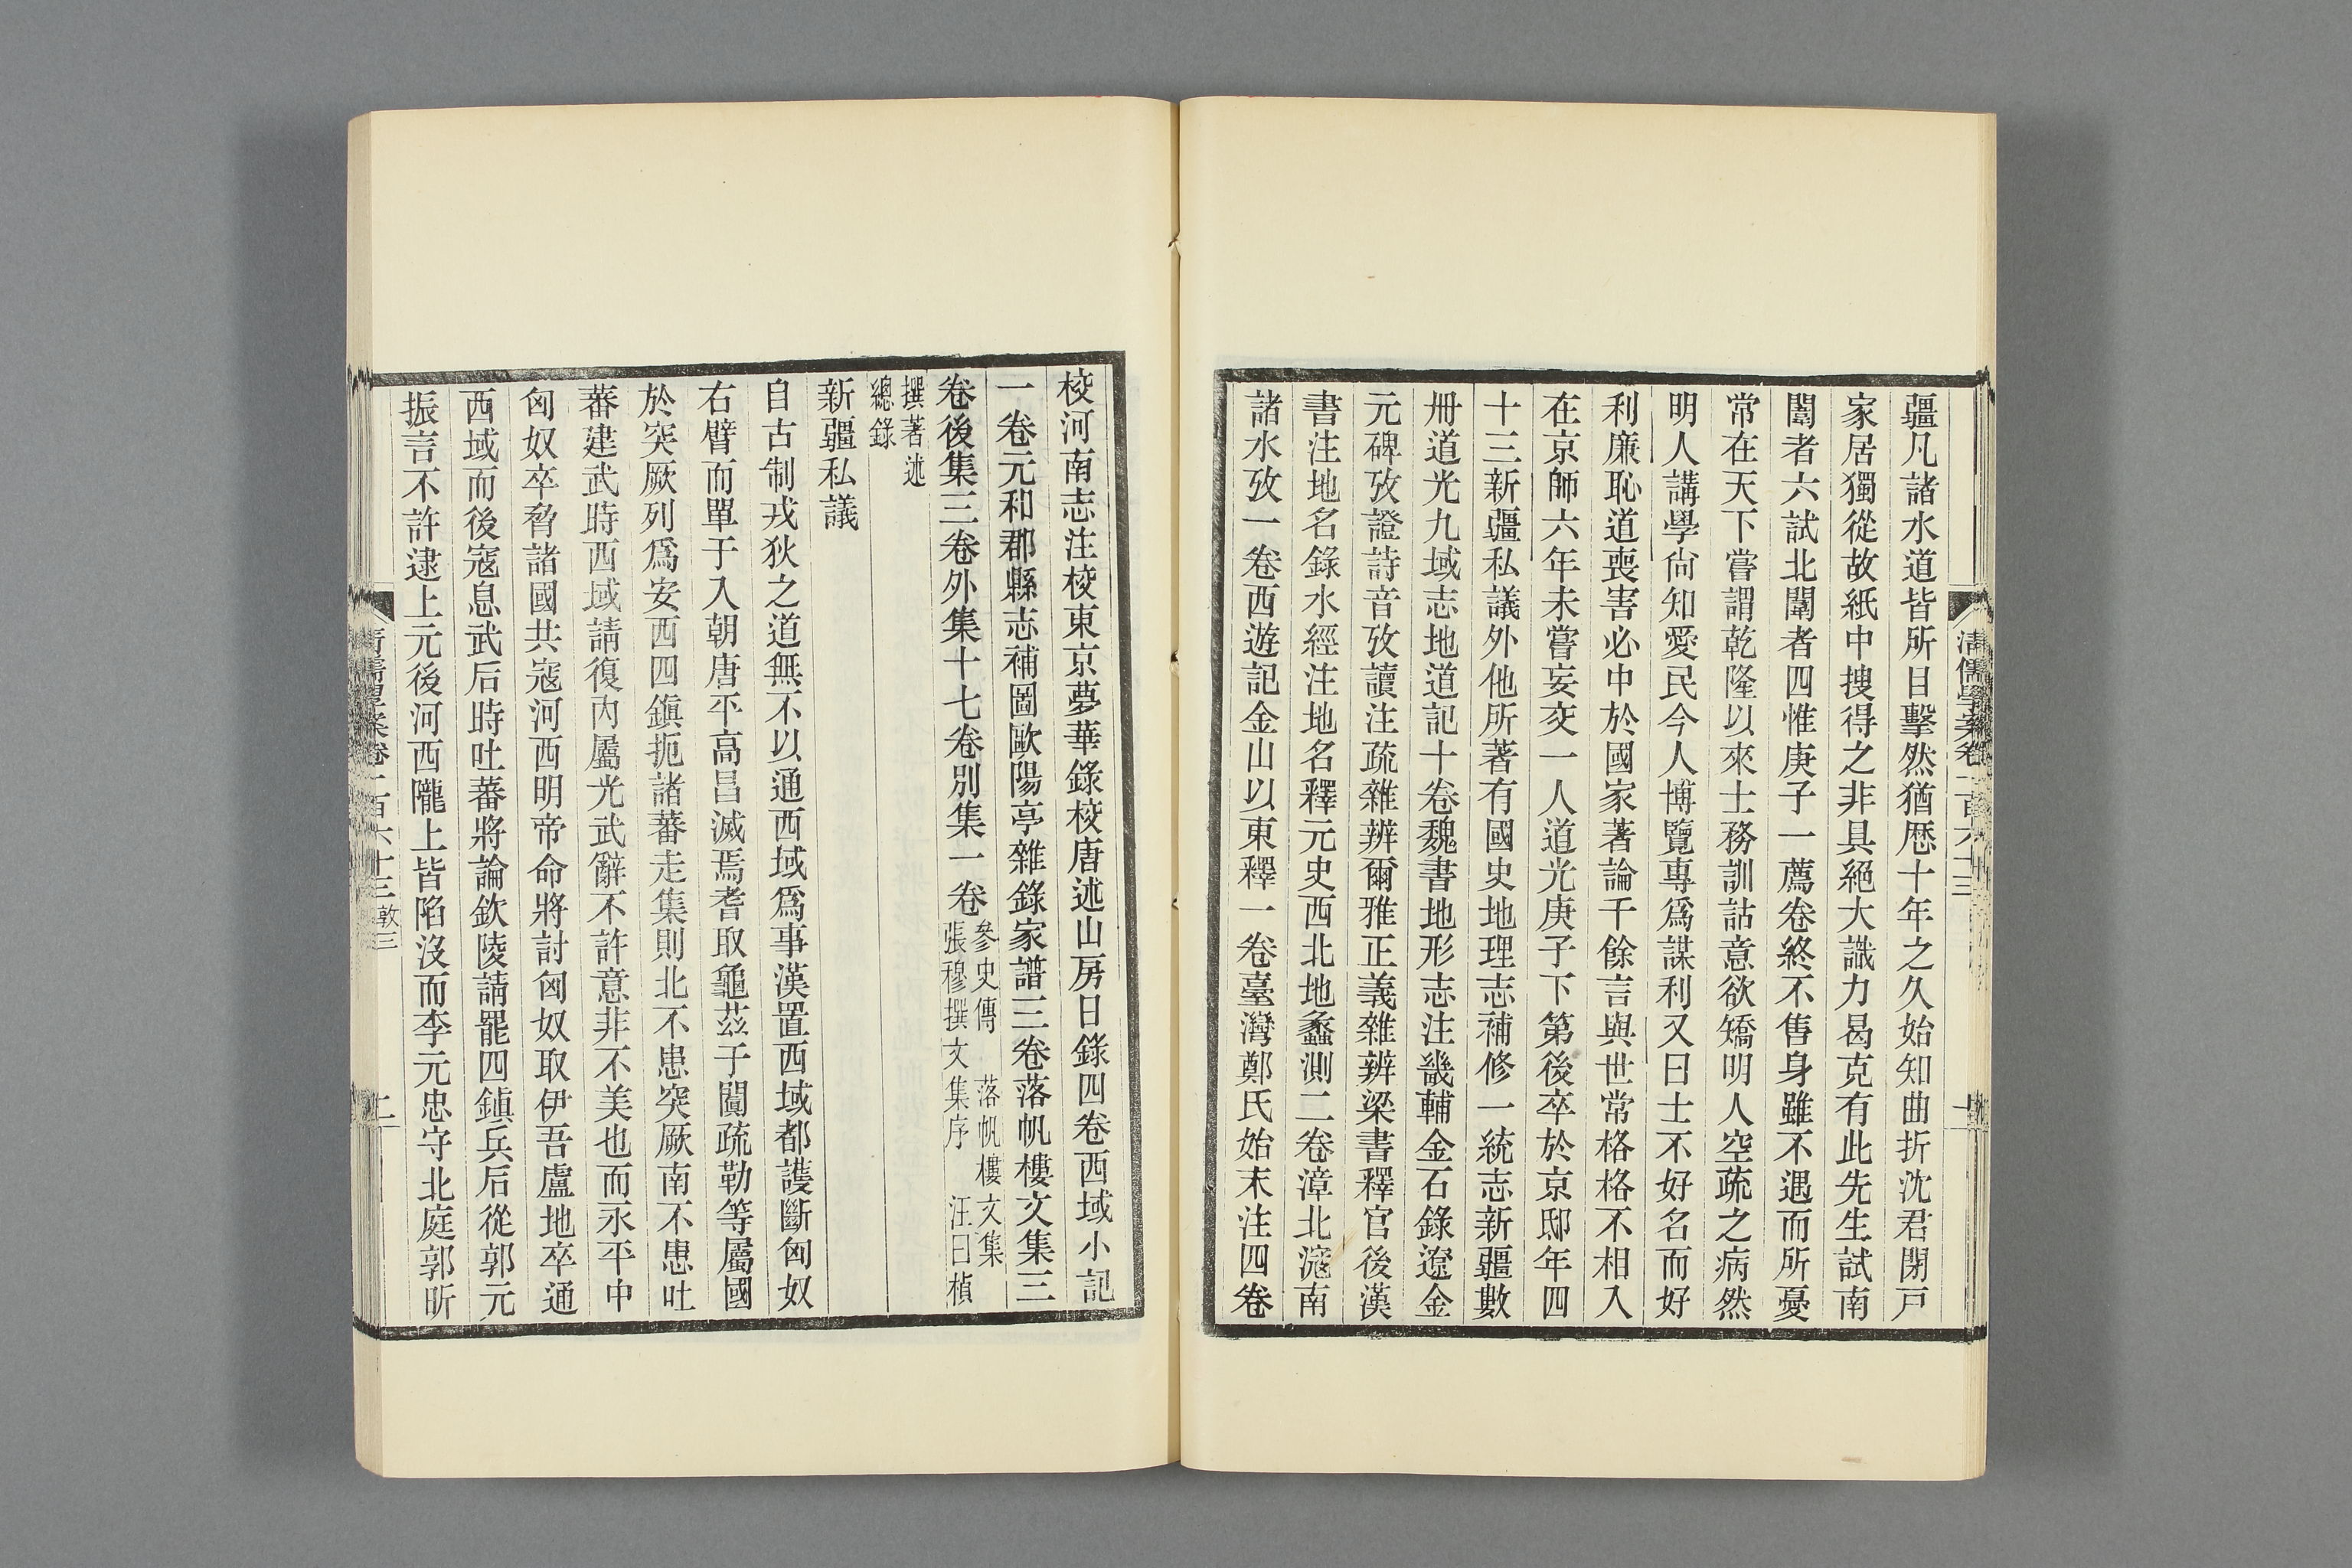 疆凡諸水道皆所目擊然猶歷十年之久始知曲折沈君閉戸
家居獨從故紙中搜得之非具絕大識力曷克有此先生試南
闈者六試北闈者四惟庚子一薦卷終不售身雖不遇而所憂
常在天下嘗謂乾隆以來士務訓詁意欲矯明人空疏之病然
明人講學尙知愛民今人博覽專爲謀利又曰士不好名而好
利廉恥道喪害必中於國家著論千餘言與世常格格不相入
在京師六年未嘗妄交一人道光庚子下第後卒於京邸年四
十三新疆私議外他所著有國史地理志補修一統志新疆數
卌道光九域志地道記十卷魏書地形志注畿輔金石錄遼金
元碑攷證詩音攷讀注疏雜辨爾雅正義雜辨梁書釋官後漢
書注地名錄水經注地名釋元史西北地蠡測二卷漳北滱南
諸水攷一卷西遊記金山以東釋一卷臺灣鄭氏始末注四卷
清儒學案卷一百六十三
校河南志注校東京夢華錄校唐述山房日錄四卷西域小記
一卷元和郡縣志補圖歐陽亭雜錄家譜三卷落帆樓文集三
卷後集三卷外集十七卷別集一卷參史傳 落帆樓文集
張穆撰文集序 汪曰楨
撰著述
總錄
新疆私議
自古制戎狄之道無不以通西域爲事漢置西域都護斷匈奴
右臂而單于入朝唐平高昌滅焉耆取龜茲于闐疏勒等屬國
於突厥列爲安西四鎭扼諸蕃走集則北不患突厥南不患吐
蕃建武時西域請復內屬光武辭不許意非不美也而永平中
匈奴卒脅諸國共寇河西明帝命將討匈奴取伊吾盧地卒通
西域而後寇息武后時吐蕃將論欽陵請罷四鎭兵后從郭元
振言不許逮上元後河西隴上皆陷沒而李元忠守北庭郭昕
清儒學案卷一百六十三 敦三
二